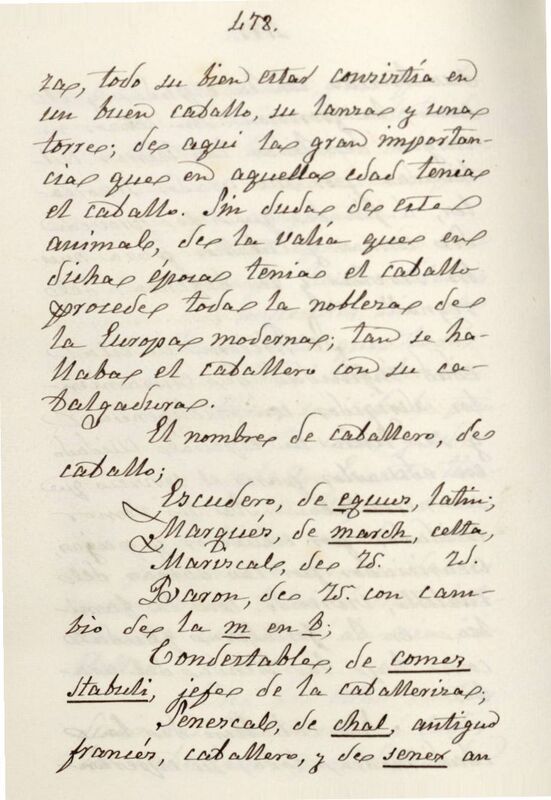 478.
za, todo su bien estar consistía en
un buen caballo, su lanza y una
torre; de aqui la gran importan-
cia que en aquella edad tenia
el caballo. Sin duda de este
animal, de la valía que en
dicha época tenia el caballo
procede toda la nobleza de
la Europa moderna; tan se ha-
llaba el caballero con su ca-
balgadura.
El nombre de caballero, de
caballo;
Escudero, de equus, latin;
Marqués, de march, celta,
Mariscal, de id. id.
Baron, de id. con cam-
bio de la m en b;
Condestable, de comes
stabuli, jefe de la caballeriza;
Senescal, de chal, antiguo
francés, caballero, y de senex an